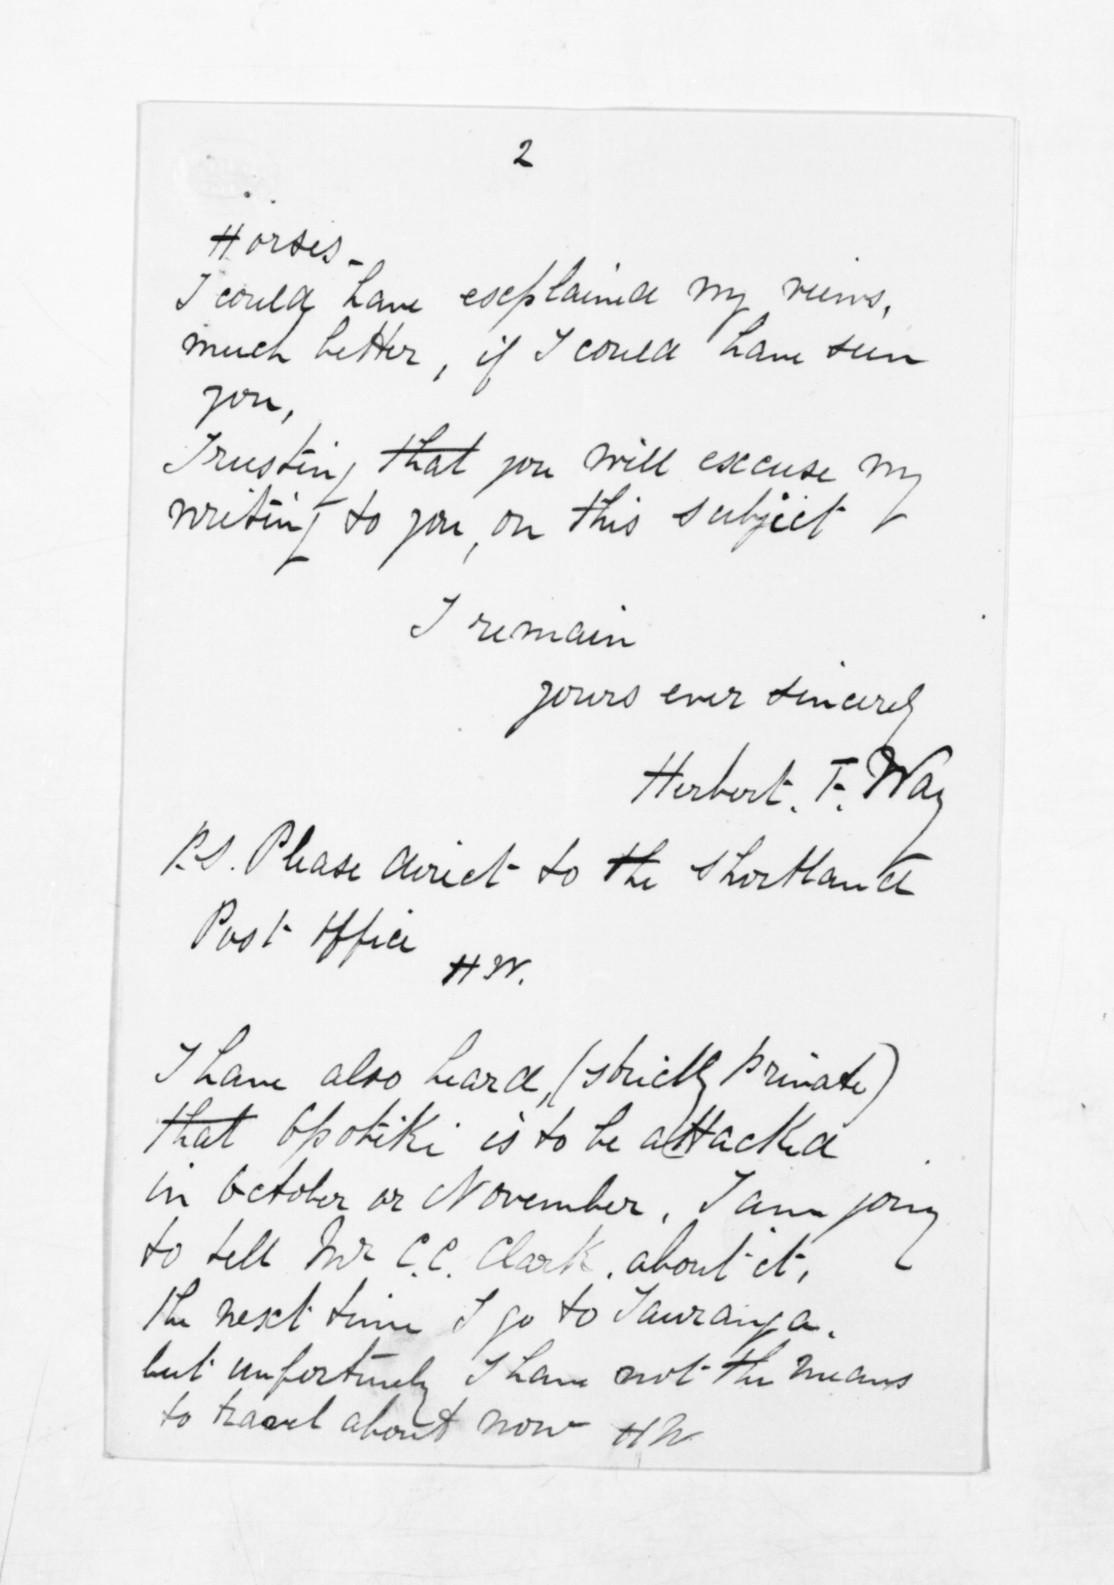 2
Horses_
I could have explained my views,
much better, if I could have seen
you,
Trusting that you will excuse my
writing to you, on this subject
I remain
yours ever sincerely
Herbert. F. Way
P.S. Please direct to the Shortland
Post Office
HW.
I have also heard, (strictly private)
that Opotiki is to be attacked
in October or November. I am going
to tell Mr C.C. Clark. about it,
the next time I go to Tauranga.
but unfortunely I have not the means
to travel about now HW